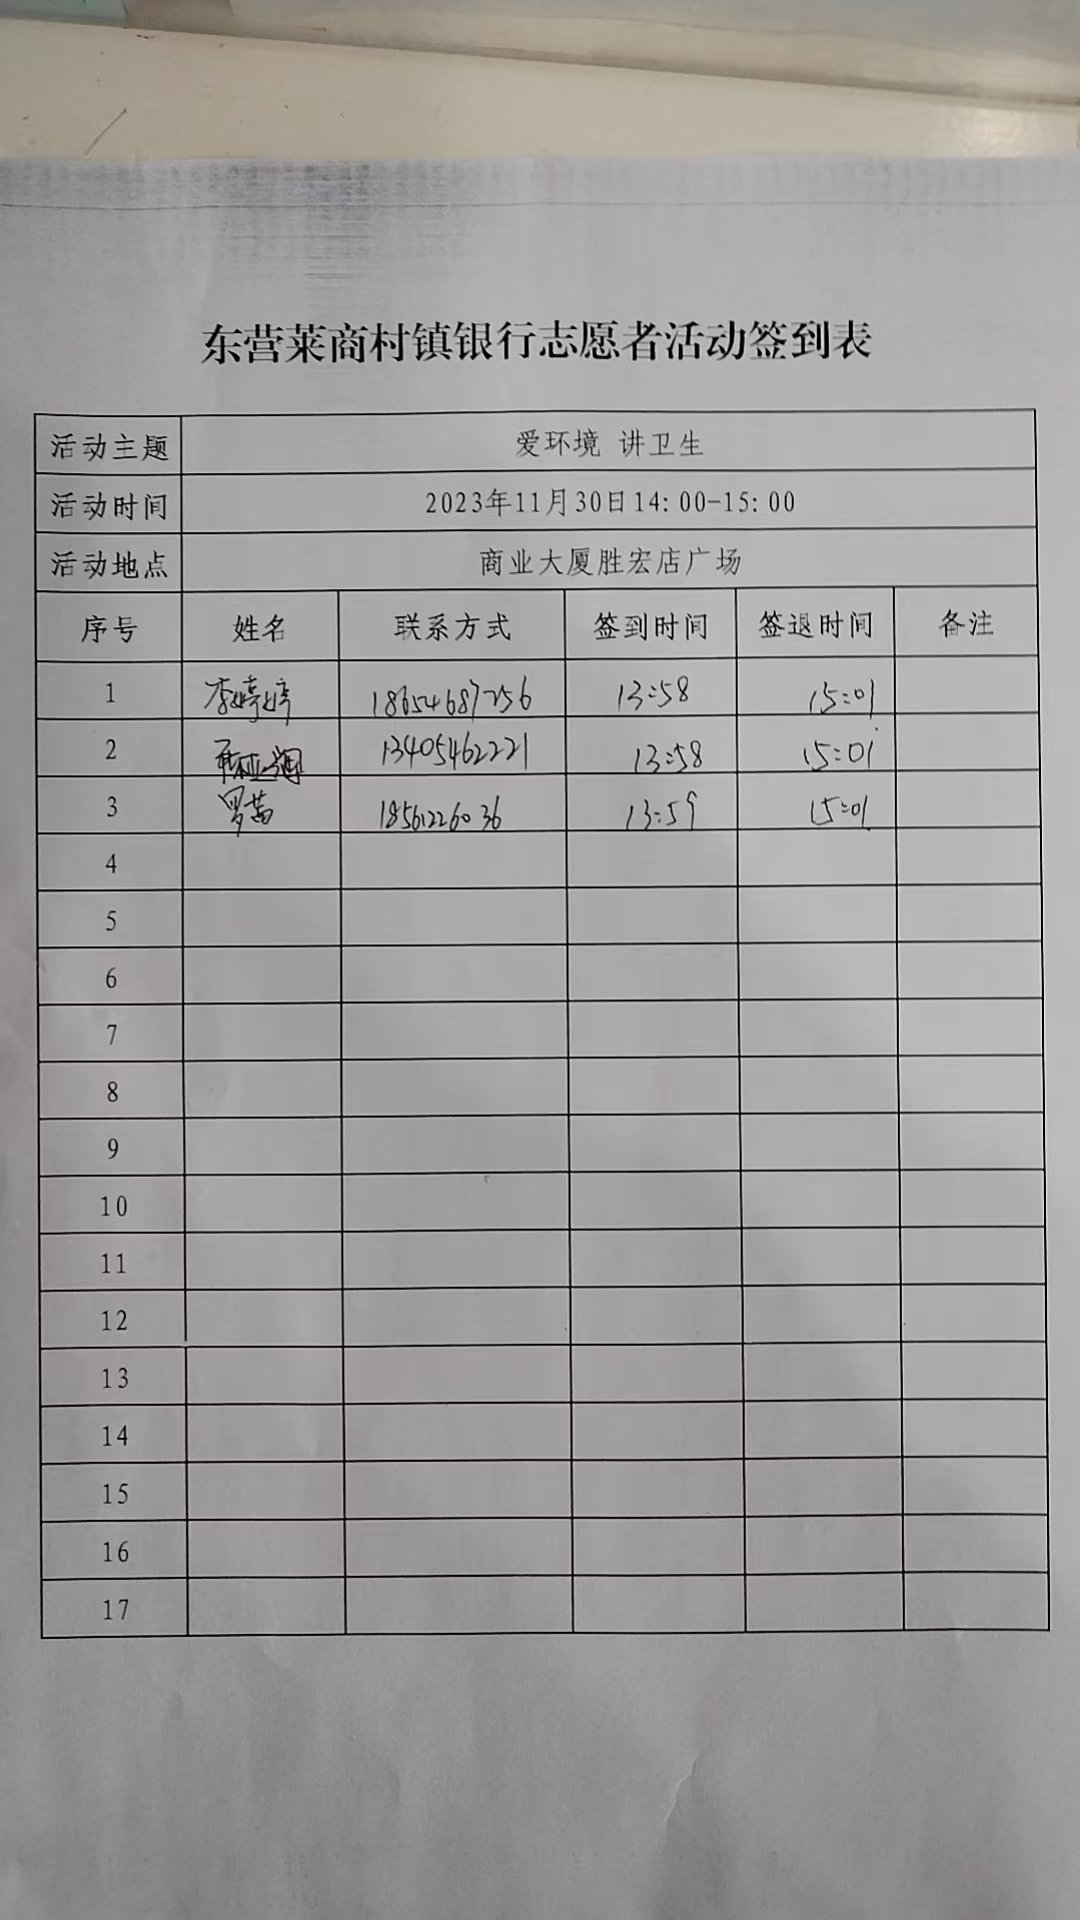 东营莱商村镇银行志愿者活动签到表
活动主题 爱环境 讲卫生
活动时间 2023年11月30日14:00-15:00
活动地点 商业大厦胜宏店广场
序号 姓名 联系方式 签到时间 签退时间 备注
1 李婷婷 18654687256 13:58 15:01
2 13405462221 13:58 15:01
3 罗茜 18561226036 13:59 15:01
4
5
6
7
8
9
10
11
12
13
14
15
16
17